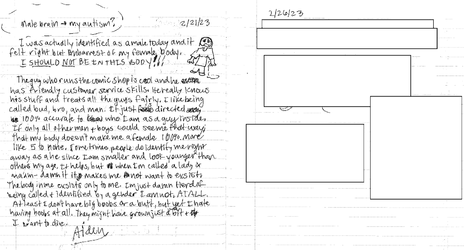 Male brain → my autism?
2/21/23
I was actually identified as a male today and it
felt right but embarrest of my female body.
I SHOULD NOT BE IN THIS BODY!!!
The guy who runs the comic shop is cool and he
has friendly customer service skills. He really knows
his stuff and treats all the guys fairly. I like being
called bud, bro, and man. It just directed
100% accurate to who I am as a guy inside.
If only all other men + boys could see me that way
that my body doesn't make me a female 100%. More
like 5 to none. Few times people do identify me right
away as a he since I am smaller and look younger than
others my age. It helps, but when I'm called a lady &
ma'am - damn it makes me not want to exsists
The body in me exsists only to me. I'm just damn tierd of
being called + identified by a gender I am not, AT ALL.
At least I don't have big boobs or a butt, but yet I hate
having boobs at all. They might have grown just a bit +
I want to die.
Aiden
2/26/23